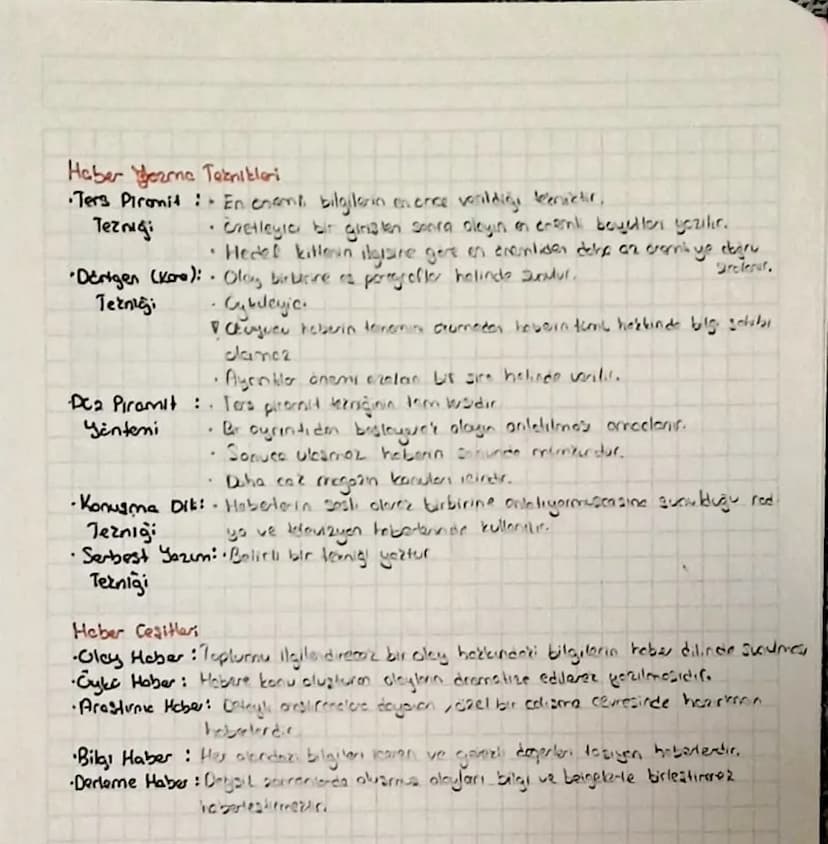 Haber Yazma Teknikleri
• Ters Piramit : • En önemli bilgilerin en önce verildiği tekniktir.
Tekniği • Özetleyici bir girişten sonra olayın en önemli boyutları yazılır.
• Hedef kitlenin ilgisine göre en önemliden daha az önemliye doğru
sıralanır.
• Dörtgen (Kare): • Olay birbirine eş paragraflar halinde sunulur.
Tekniği • Öyküleyici.
Okuyucu haberin tamamını okumadan haberin tümü hakkında bilgi sahibi
olamaz
• Ayrıntılar önemi azalan bir sıra halinde verilir.
Düz Piramit : • Ters piramit tekniğinin tam tersidir
Yöntemi • Bir ayrıntıdan başlayarak olayın anlatılması amaçlanır.
• Sonuca ulaşmak haberin sonunda mümkündür.
• Daha çok magazin konuları içindir.
• Konuşma Dili: • Haberlerin sesli olarak birbirine anlatıyormuşcasına sunulduğu rad
Tekniği yo ve televizyon haberlerinde kullanılır.
• Serbest Yazım: • Belirli bir tekniği yoktur
Tekniği
Haber Çeşitleri
• Olay Haber : Toplumu ilgilendirecek bir olay hakkındaki bilgilerin haber dilinde sunulması
• Öykü Haber : Habere konu oluşturan olayların dramatize edilerek yazılmasıdır.
• Araştırma Haber: Detaylı araştırmalara dayanan, özel bir çalışma çevresinde hazırlanan
haberlerdir
• Bilgi Haber : Her alandaki bilgileri içeren ve güncel değerleri taşıyan haberlerdir.
• Derleme Haber : Değişik zamanlarda oluşmuş olayları bilgi ve belgelerle birleştirerek
haberleştirmektir.